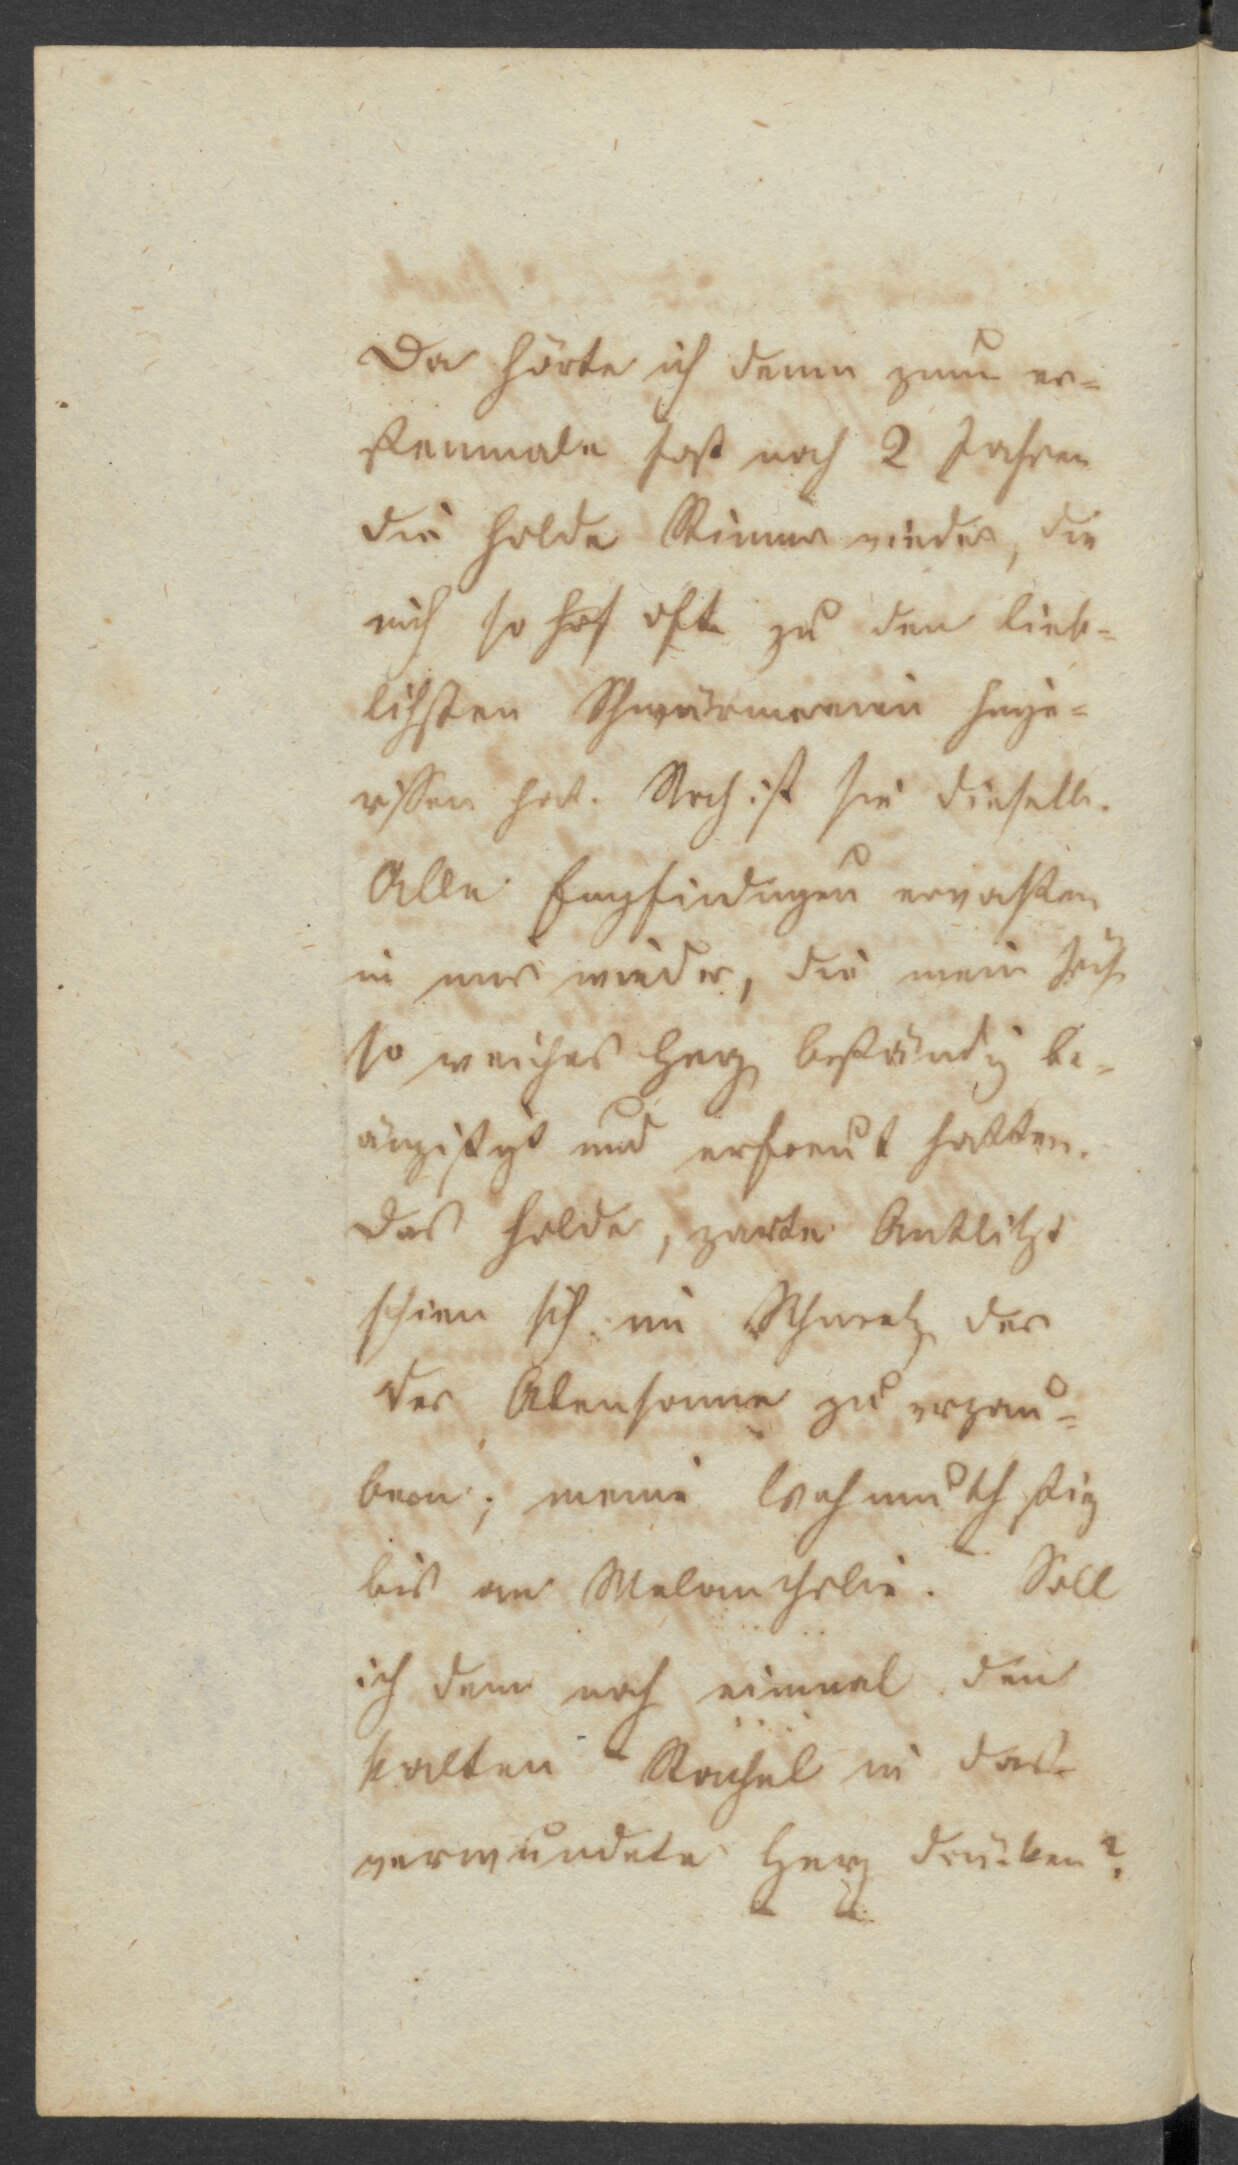 Da hörte ich denn zum er=
stenmale fast nach 2 Jahren
die holde Stimme wieder, die
mich so oft zu den lieb=
lichsten Schwärmereien hinge=
rissen hat. Noch ist sie dieselbe.
Alle Empfindungen erwachten
in mir wieder, die mein
so weiches Herz beständig be=
ängstigt und erfreut hatten.
Das holde, zarte Antlitz
schien sich im Schmelz der
der Abensonne zu verzau=
bern; meine Wehmuth stieg
bis an Melancholie. Soll
ich denn noch einmal den
kalten Stachel in das
verwundete Herz drücken?